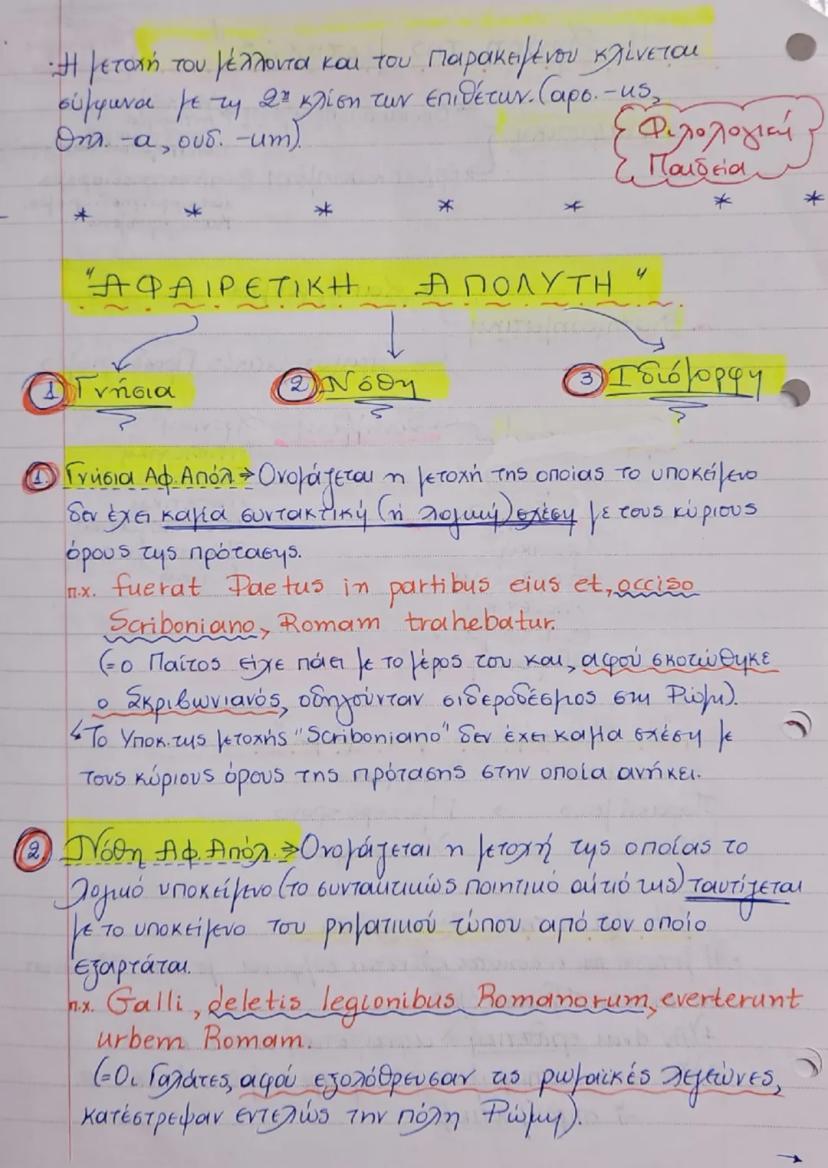 ·Η μετοχή του μέλλοντα και του Παρακειμένου κλίνεται
σύμφωνα με τη 2η κλίση των επιθέτων.(αρσ.-us,
θηλ. -a, ουδ. -um).
Φιλολογική
Παιδεία
* * * * * * *
"ΑΦΑΙΡΕΤΙΚΗ ΑΠΟΛΥΤΗ"
1 Γνήσια 2 Νόθη 3 Ιδιόμορφη
1. Γνήσια Αφ. Απόλ → Ονομάζεται η μετοχή της οποίας το υποκείμενο
δεν έχει καμία συντακτική (ή λογική) σχέση με τους κύριους
όρους της πρότασης.
π.χ. fuerat Paetus in partibus eius et, occiso
Scriboniano, Romam trahebatur.
(=ο Παίτος είχε πάει με το μέρος του και, αφού σκοτώθηκε
ο Σκριβωνιανός, οδηγούνταν σιδεροδέσμιος στη Ρώμη).
↳Το Υποκ. της μετοχής "Scriboniano" δεν έχει καμία σχέση με
τους κύριους όρους της πρότασης στην οποία ανήκει.
2 Νόθη Αφ. Απόλ. → Ονομάζεται η μετοχή της οποίας το
λογικό υποκείμενο (το συντακτικώς ποιητικό αίτιό της) ταυτίζεται
με το υποκείμενο του ρηματικού τύπου από τον οποίο
εξαρτάται.
π.χ. Galli, deletis legionibus Romanorum, everterunt
urbem Romam.
(=Οι Γαλάτες, αφού εξολόθρευσαν τις ρωμαϊκές λεγεώνες,
κατέστρεψαν εντελώς την πόλη Ρώμη).
→